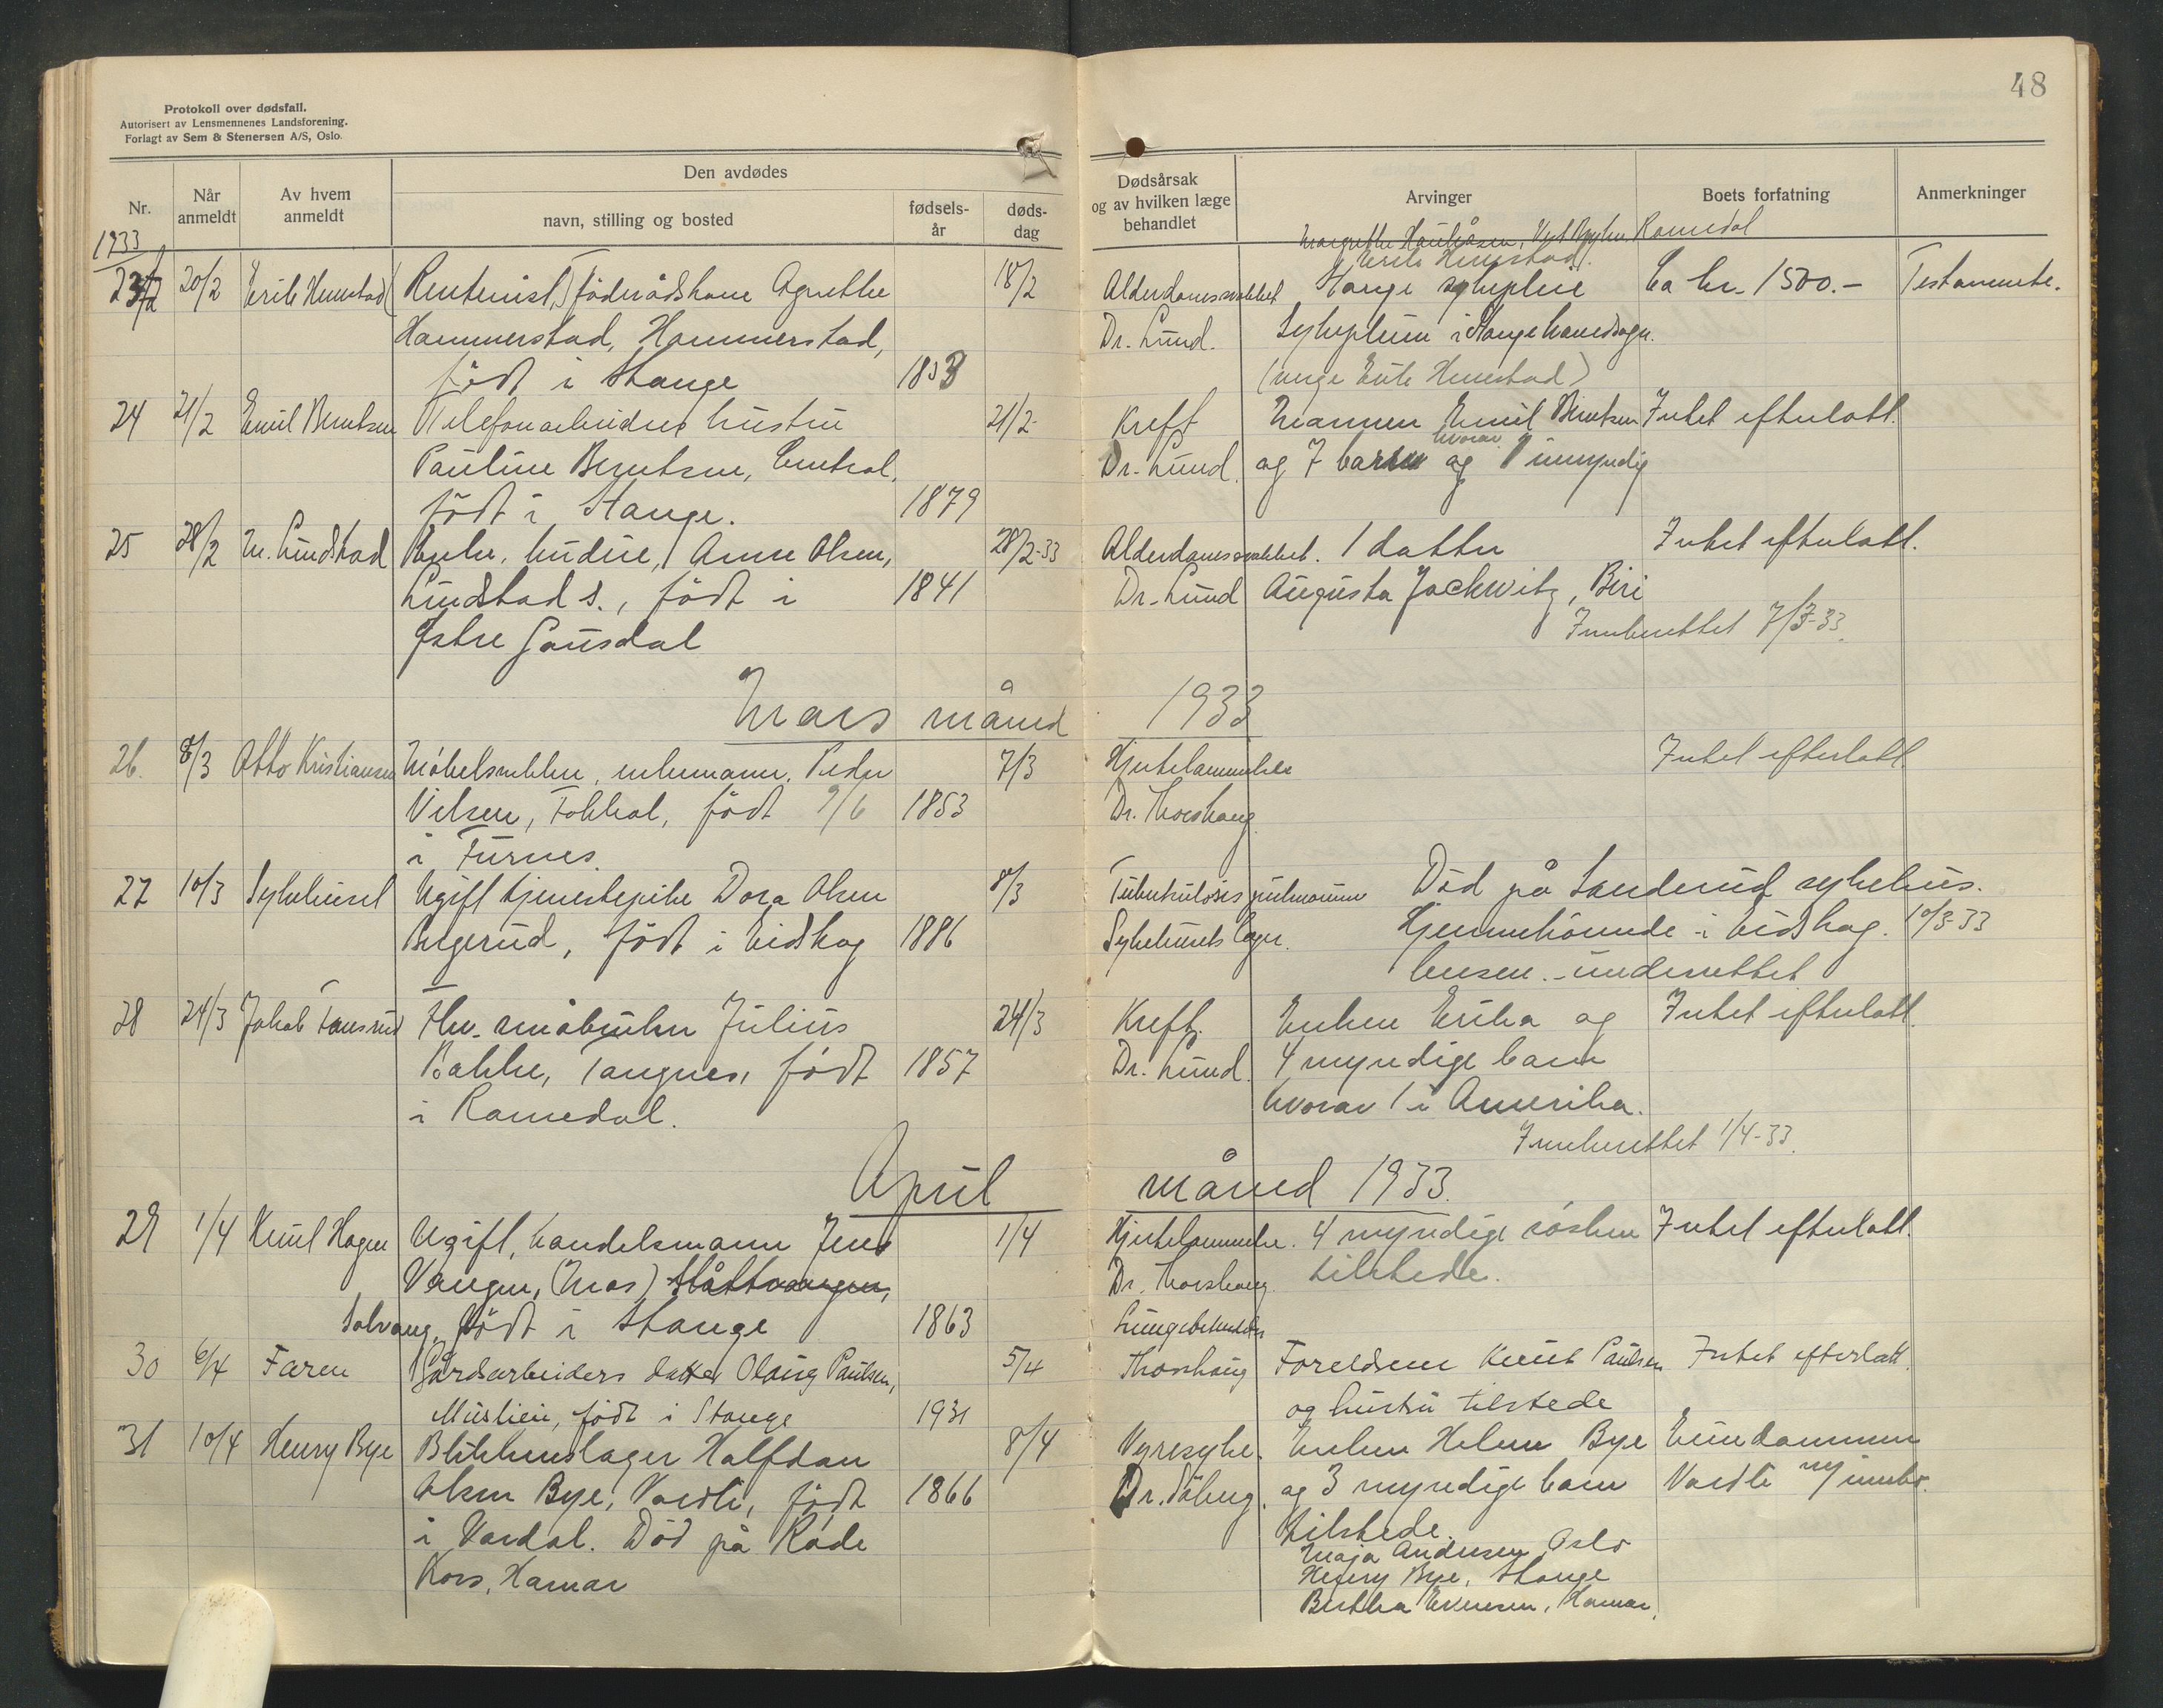 48
Protokoll over dødsfall.
Autorisert av Lensmennenes Landsforening.
Forlagt av Sem & Stenersen A/S, Oslo.
Nr.
Når anmeldt
Av hvem anmeldt
Den avdødes
navn, stilling og bosted
fødsels-år
døds-dag
Dødsårsak og av hvilken læge behandlet
Arvinger
Boets forfatning
Anmerkninger
1933
Romedal
23 20/2 Erik Hemstad (Rentenist,) föderådskone Agnethe 18/2 Alderdomssvakhet Stange sykepleie Ca kr. 1500.- Testamente.
Hammerstad, Hammerstad, Dr. Lund. Sykepleien i Stange hovedsogn.
født i Stange 1853 (verge Erik Hemstad)
24 21/2 Emil Berntsen Telefonarbeider hustru 21/2 Kreft Mannen Emil Berntsen Intet efterlatt.
Pauline Berntsen, Central, Dr. Lund og 7 barn hvorav 1 umyndig
født i Stange. 1879
25 28/2 M. Lindstad Enke, Anne Olsen, 28/2-33 Alderdomssvakhet. 1 datter Intet efterlatt.
Lindstad s., født i 1841 Dr. Lund Augusta Jackwitz, Biri
Østre Gausdal Innberettet 7/3-33.
Mars måned 1933
26. 8/3 Otto Kristiansen Möbelsnekker, enkemann, Peder 7/3 Hjertelammelse Intet efterlatt
Nilsen, født 9/6 1853 Dr. Thorshaug
i Furnes
27 10/3 Sykehuset Ugift tjenestepike Dora Olsen 8/3 Tuberkulosis pulmonum Død på Sanderud sykehus.
Bergerud, født i Eidskog 1886 Sykehusets læger. Hjemmehörende i Eidskog. 10/3-33
Lensm. underrettet
28 24/3 Jakob Fhv. småbruker Julius 24/3 Kreft. Enken Erika og Intet efterlatt.
Bakke, Tangnes, født 1857 Dr. Lund. 4 myndige barn
i Romedal. hvorav 1 i Amerika.
Innberettet 1/4-33.
April måned 1933.
29 1/4 Knut Hagen Ugift, handelsmann Jens 1/4 Hjertelammelse. 4 myndige söstre Intet efterlatt.
Vangen, (Mos) Slåttvangen, Dr. Thorshaug. tilstede.
Solvang, født i Stange 1863
30 6/4 Faren Gårdsarbeiders datter Olaug Paulsen, 5/4 Lungebetendelse Thorshaug Foreldrene Knut Paulsen Intet efterlatt.
født i Stange 1931 og hustru tilstede
31 10/4 Henry Bye Blikkenslager Halfdan 8/4 Nyresyke. Enken Helene Bye Eiendommen
Olsen Bye, Vardli, født 1866 Dr. og 3 myndige barn Vardli m/innbo.
i Vardal. Död på Röde tilstede.
Kors, Hamar Maja Andersen, Oslo
Henry Bye, Stange
Bertha Evensen, Hamar,